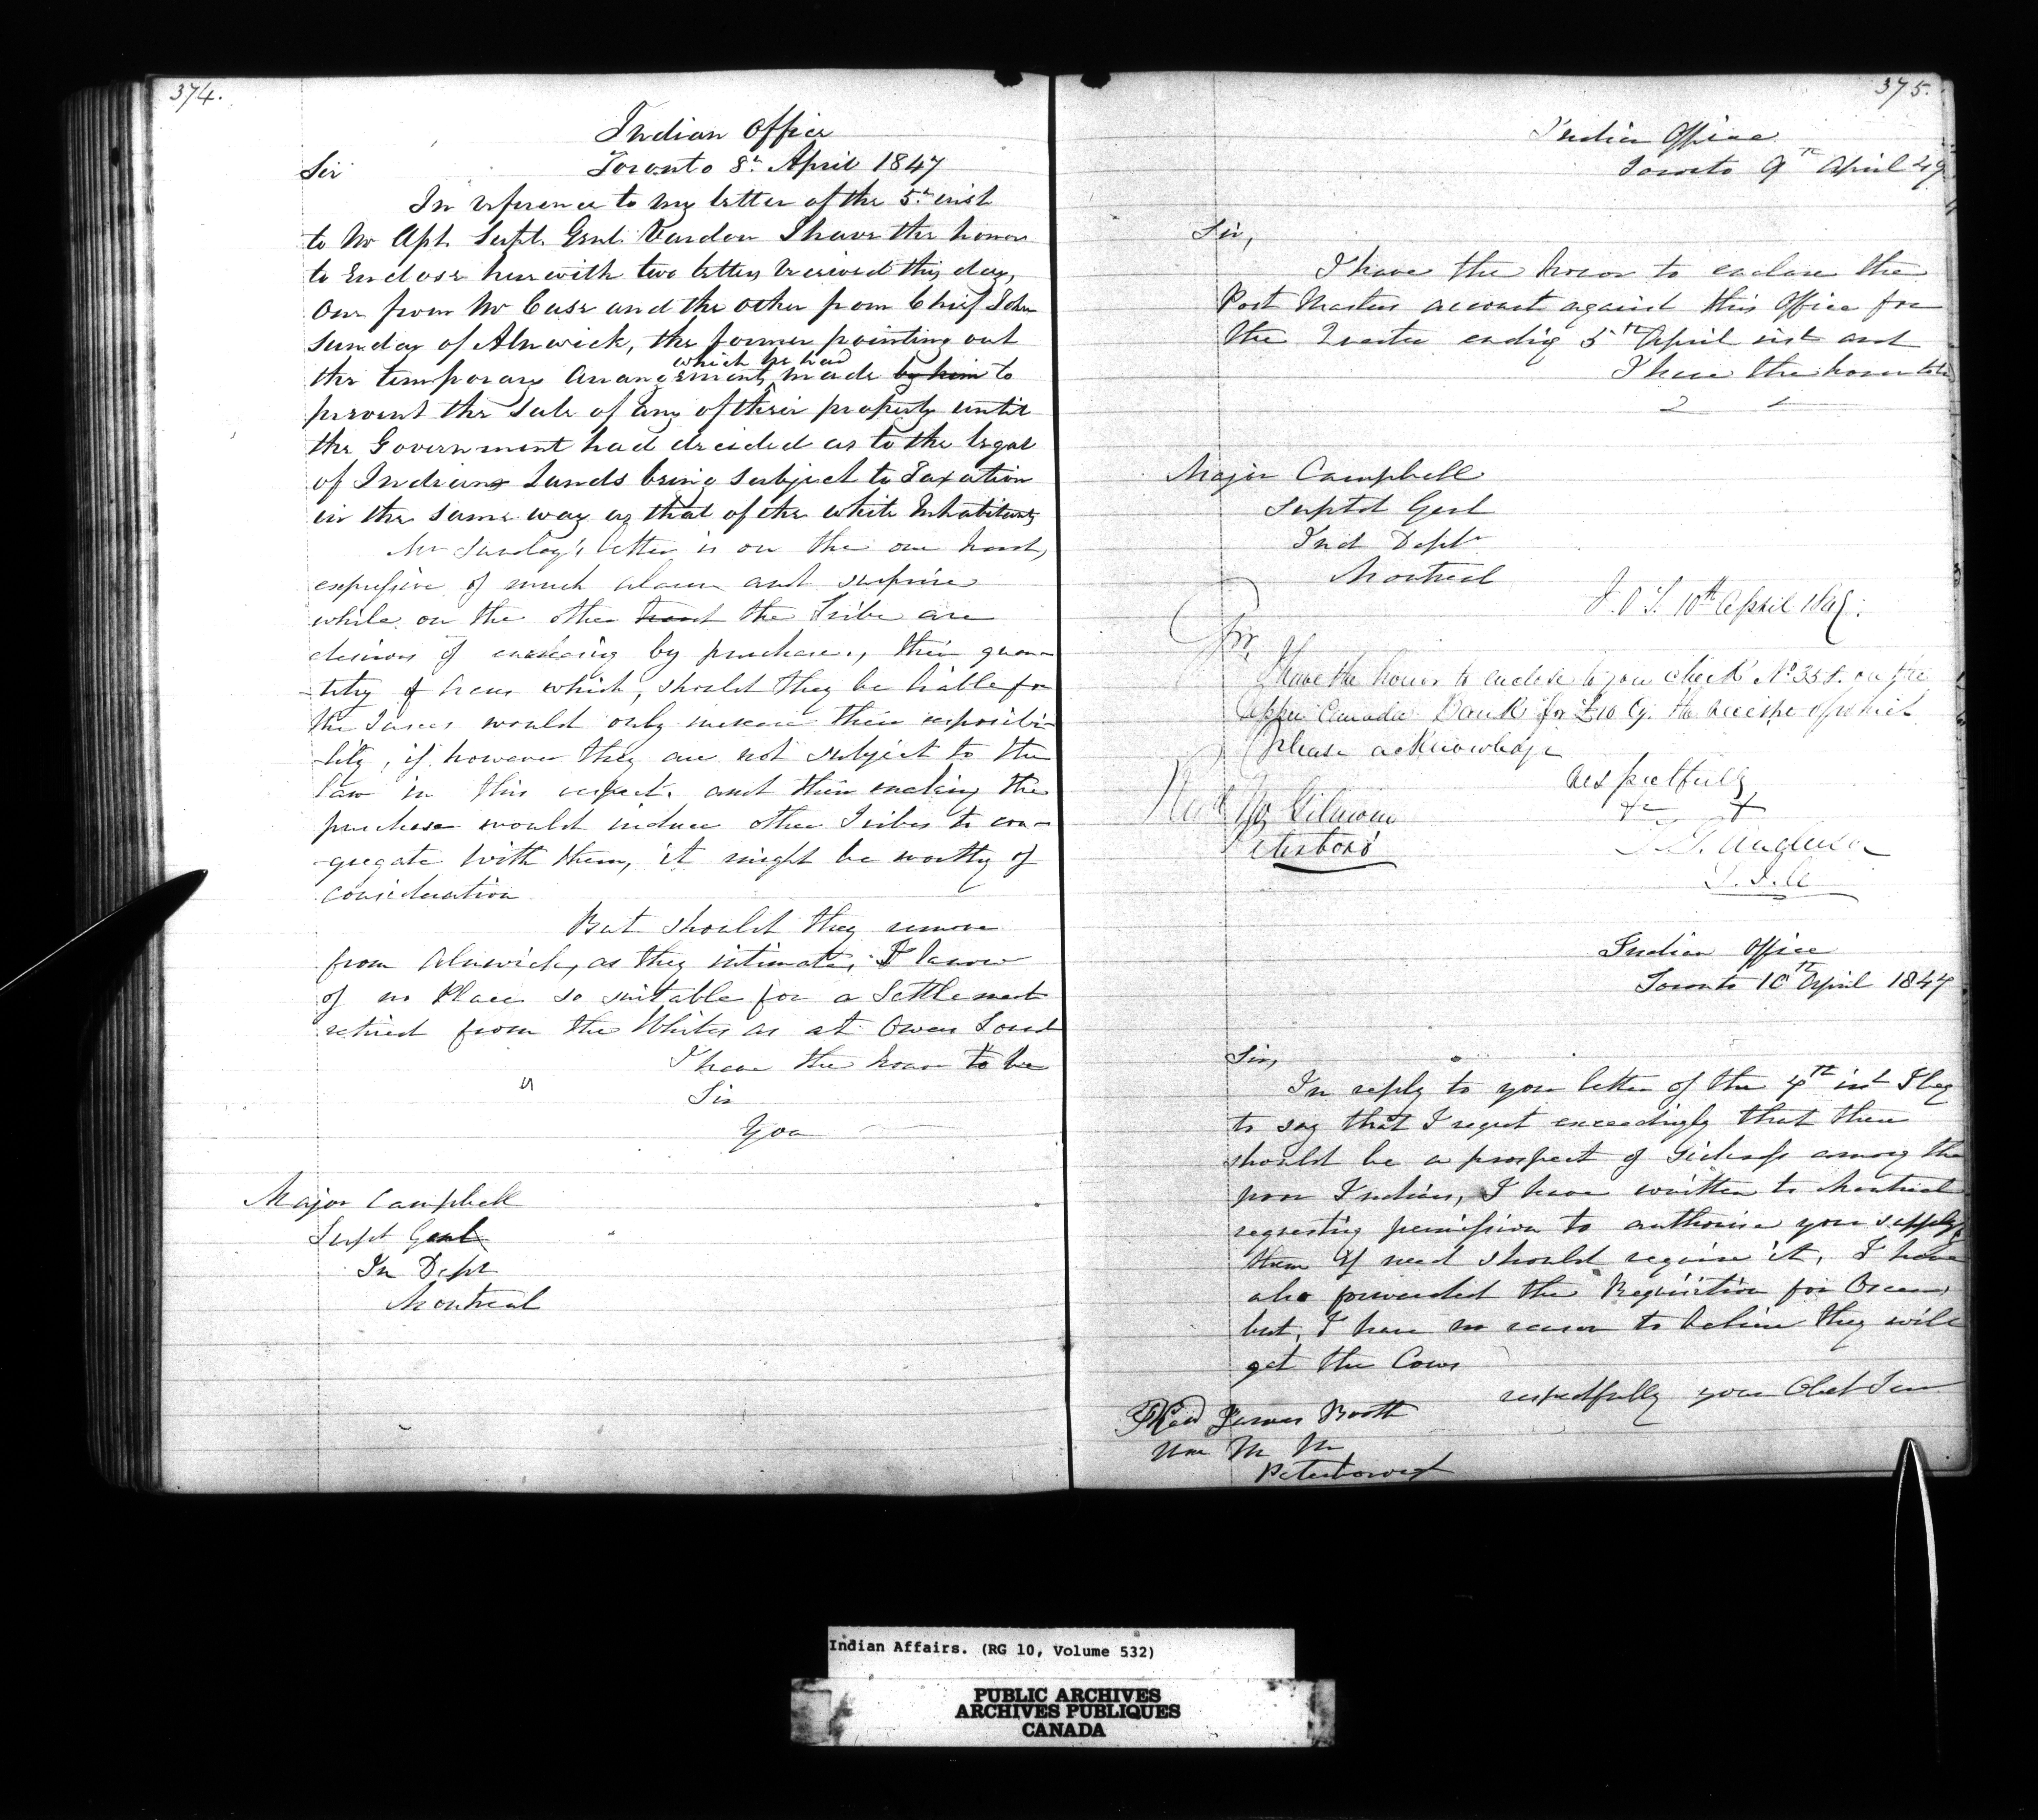 374.
Indian Office
Toronto 8th April 1847
Sir
In reference to my letter of the 5th inst
to Mr Apt. Supt. Genl. Vardon I have the honor
to Enclose herewith two letters received this day,
One from Mr Case and the other from Chief John
Sunday of Alnwick, the former pointing out
which he had
the temporary Arrangements made by him to
prevent the Sale of any of their property until
the Government had decided as to the legal
of Indians Lands being subject to Taxation
in the same way as that of the white Inhabitants
Mr Sunday's letter is on the one hand,
expressive of much alarm and surprise
while on the other hand the Tribe are
desirous of increasing by purchase, their quan-
-tity of Acres which, should they be liable for
the Taxes would only increase their responsibi-
-lity, if however they are not subject to the
law in this respect, and their making the
purchase would induce other Tribes to con-
-gregate with them, it might be worthy of
consideration
But should they remove
from Alnwick, as they intimate, I know
of no Place so suitable for a Settlement
retired from the Whites as at Owen Sound
I have the honor to be
Sir
You
Major Campbell
Supt Genl
In Dept
Montreal
375.
Indian Office
Toronto 9th April 47
Sir,
I have the honor to enclose the
Post Masters account against this Office for
the Quarter endig 5th April inst and
I have the honor to be
Major Campbell
Suptd Genl
Ind Dept
Montreal
I.O.T. 10th April 1847.
Sir,
I have the honor to enclose to you check No 358. on the
Upper Canada Bank for £10 Cy. the receipt of which
please acknowledge
Respectfully
&c &
T G Anderson
S.I.A
Gilmour
Peterboro'
Indian Office
Toronto 10th April 1847
Sir,
In reply to your letter of the 4th inst I beg
to say that I regret exceedingly that there
should be a prospect of Sickness among the
poor Indians, I have written to Montreal
requesting permission to authorise you supply
them if need should require it, I have
also forwarded the Requisition for Oxen,
but, I have no reason to believe they will
get the Cows
respectfully your Obdt Serv
James Booth
M M
Peterborough
Indian Affairs. (RG 10, Volume 532)
PUBLIC ARCHIVES
ARCHIVES PUBLIQUES
CANADA